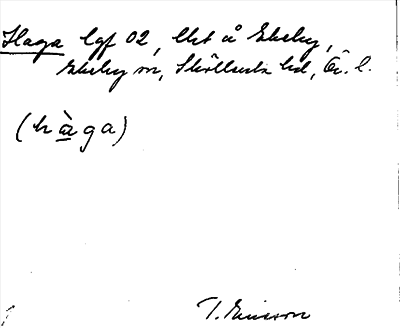 Haga lgf 02, Ust å Ekeby,
Ekeby sn, Skyllersta hd, Ör. l.
(hàga)
T. Ericson